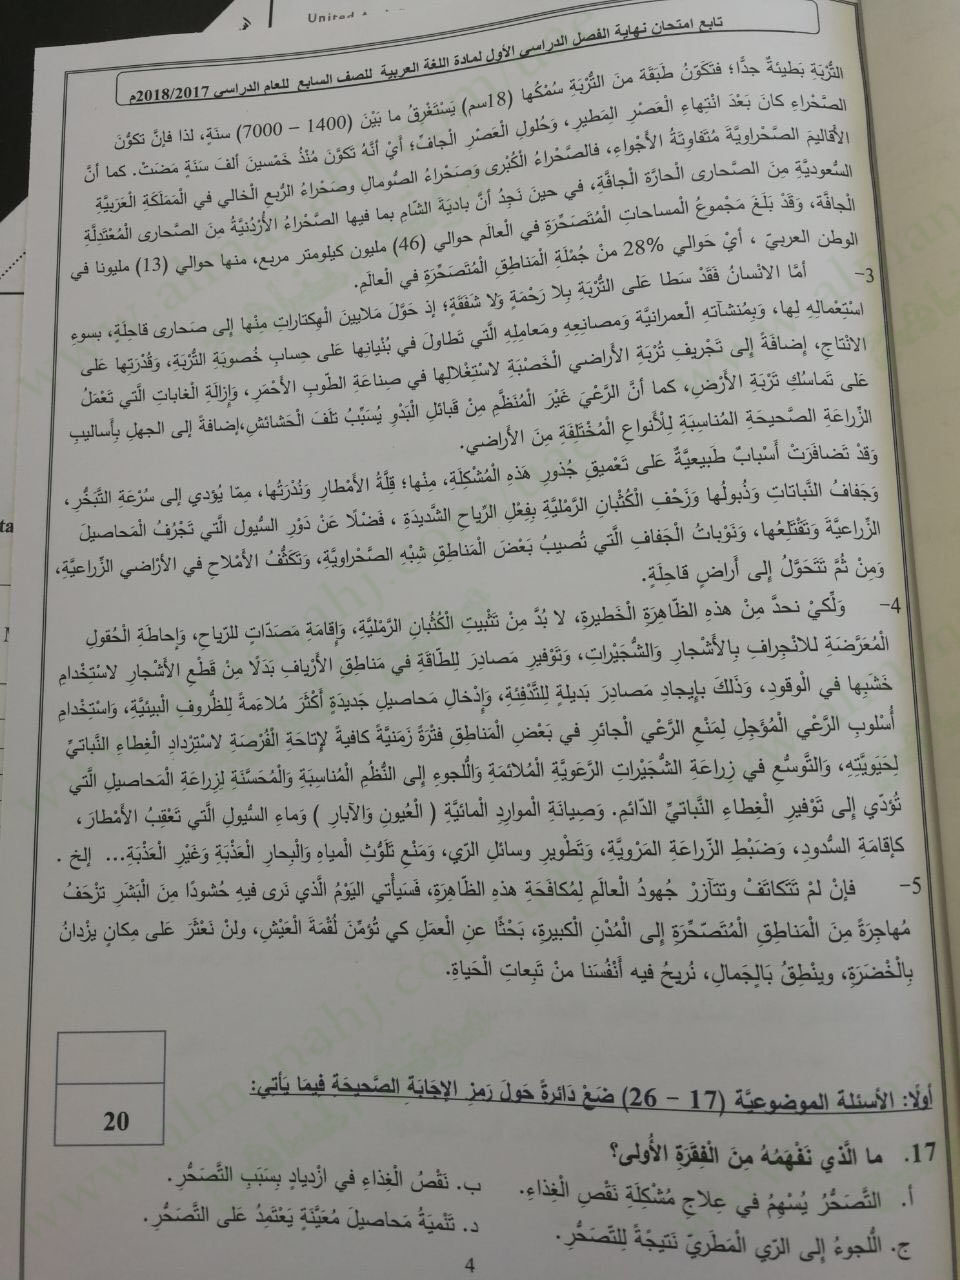 United
تابع امتحان نهاية الفصل الدراسي الأول لمادة اللغة العربية للصف السابع للعام الدراسي 2018/2017م
التُّرْبَةِ بَطِيئةٌ جدًّا؛ فتَكَوّنُ طَبَقَة منَ التُّرْبَةِ سُمْكُها (18سم) يَسْتَغْرِقُ ما بَيْنَ (1400 – 7000) سنةٍ، لذا فإنَّ تكوُّنَ
الصَّحْراءِ كانَ بَعْدَ انْتِهاءِ الْعَصْرِ المَطيرِ، وَحُلولِ الْعَصْرِ الْجافِّ؛ أيْ أنَّهُ تَكوَّنَ مُنْذُ خَمْسينَ ألفَ سَنَةٍ مَضَتْ. كما أنَّ
الأقاليمَ الصَّحْراويَّةَ مُتَفاوتَةُ الأجْواءِ، فالصَّحْراءُ الْكُبْرى وَصَحْراءُ الصُّومالِ وصَحْراءُ الرُّبعِ الْخالي في الْمَمْلَكةِ الْعَرَبيَّةِ
السُّعوديَّةِ مِنَ الصَّحارى الْحارَّةِ الْجافَّةِ، في حينَ نَجِدُ أنَّ باديَةَ الشَّامِ بما فيها الصَّحْراءُ الأُرْدُنيَّةُ مِنَ الصَّحارى الْمُعْتَدِلَةِ
الْجافَّةِ، وَقَدْ بَلَغَ مَجْموعُ المساحاتِ الْمُتَصَحِّرَةِ في الْعالَمِ حوالي (46) مليون كيلومتر مربع، منها حوالي (13) مليونا في
الوطنِ العربيّ ، أيْ حَوالي %28 منْ جُمْلَةِ الْمَناطِقِ الْمُتَصَحِّرَةِ في الْعالَمِ.
3- أمَّا الانْسانُ فَقَدْ سَطا على التُّرْبَةِ بِلا رَحْمَةٍ وَلا شَفَقَةٍ؛ إذ حَوَّلَ مَلايينَ الْهِكتاراتِ مِنْها إلى صَحارى قاحِلَةٍ، بسوءِ
اسْتعْمالِهِ لها، وَبِمُنشآتِهِ الْعمرانيَّةِ وَمصانِعِهِ ومَعامِلِهِ الَّتي تَطاوَلَ في بُنْيانِها عَلى حِسابِ خُصوبَةِ التُّرْبَةِ، وَقُدْرَتِها عَلى
الانْتاجِ، إضافَةً إلى تَجْريفِ تُرْبَةِ الأراضي الْخَصْبَةِ لاسْتِغْلالِها في صِناعَةِ الطّوبِ الأَحْمَرِ، وَإزالَةِ الْغاباتِ الَّتي تَعْمَلُ
عَلى تَماسُكِ تَرْبَةِ الأَرْضِ، كما أنَّ الرَّعْيَ غَيْرَ الْمُنَظَّمِ مِنْ قَبائلِ الْبَدْوِ يُسَبِّبُ تَلَفَ الْحَشائشِ،إضافةً إلى الجهلِ بِأَساليبِ
الزِّراعَةِ الصَّحيحَةِ الْمُناسَبَةِ لِلْأنواعِ الْمُخْتَلِفَةِ مِنَ الأَراضي.
وَقَدْ تَضافَرَتْ أَسْبابٌ طَبيعيَّةٌ عَلى تَعْميقِ جُذورِ هَذِهِ الْمُشْكلَةِ، مِنْها؛ قِلَّةُ الأمْطارِ وَنُدْرَتُها، مِمّا يُؤدي إلى سُرْعَةِ التَّبَخُّرِ ،
وَجَفافُ النَّباتاتِ وَذُبولُها وَزَحْفِ الْكُثْبانِ الرَّمْليَّةِ بِفِعْلِ الرِّياحِ الشَّديدَةِ ، فَضْلًا عَنْ دَوْرِ السُّيولِ الَّتي تَجْرُفُ الْمَحاصيلَ
الزِّراعيَّةَ وَتَقْتَلِعُها، وَنَوْباتُ الْجَفافِ الَّتي تُصيبُ بَعْضَ الْمَناطِقِ شِبْهِ الصَّحْراويَّةِ، وَتَكَثُّفُ الأَمْلاحِ في الأرْاضي الزِّراعيَّةِ،
وَمِنْ ثُمَّ تَتَحَوَّلُ إلى أَراضٍ قاحِلَةٍ.
4- وَلِّكيْ نحدَّ مِنْ هذهِ الظّاهِرَةِ الْخَطيرةِ، لا بُدَّ مِنْ تَثْبيتِ الْكُثُبانِ الرَّمْليَّةِ، وَإقامَةِ مَصَدّاتٍ لِلرّياحِ، وَإحاطَةِ الْحُقولِ
الْمُعَرَّضَةِ للانْجِرافِ بِالأشْجارِ والشُّجَيْراتِ، وَتَوْفيرِ مَصادِرَ لِلطّاقَةِ في مَناطِقِ الأَرْيافِ بَدَلًا مِنْ قَطْعِ الأشْجارِ لاسْتِخْدامِ
خَشَبِها في الْوقودِ، وَذَلكَ بإيجادِ مَصادِرَ بَديلةٍ لِلتَّدْفِئةِ، وَإدْخالِ مَحاصيلَ جَديدَةٍ أَكْثَرَ مُلاءَمةً لِلظُّروفِ الْبيئيَّةِ، وَاسْتِخْدامِ
أُسْلوبِ الرَّعْيِ الْمُؤَجلِ لِمَنعِ الرَّعْيِ الْجائرِ في بَعْضِ الْمَناطِقِ فَتْرَةً زَمَنيَّةً كافيةً لإتاحَةِ الْفُرْصَةِ لاسْتِرْدادِ الْغِطاءِ النَّباتيِّ
لِحَيَويَّتِهِ، وَالتَّوسُّعِ في زِراعَةِ الشُّجَيْراتِ الرَّعَويَّةِ الْمُلائمَةِ وَاللُّجوءِ إلى النُّظُمِ الْمُناسِبَةِ وَالْمُحَسَّنَةِ لِزِراعَةِ الْمَحاصيلِ الَّتي
تُؤدّي إلى تَوْفيرِ الْغِطاءِ النَّباتيِّ الدّائمِ. وَصيانَةِ الْمواردِ الْمائيَّةِ ( الْعُيونِ وَالآبارِ ) وَماءِ السُّيولِ الَّتي تَعْقِبُ الأَمْطارَ،
كإقامَةِ السُّدودِ، وَضَبْطِ الزّراعَةِ المَرْويَّةِ، وَتَطْويرِ وسائلِ الرّيِ، وَمَنْعِ تَلَوُّثِ المياهِ وَالْبِحارِ الْعَذْبَةِ وَغَيْرِ الْعَذْبَةِ... إلخ .
5- فإنْ لمْ تَتَكاتَفْ وتتآزرْ جُهودُ الْعالَمِ لِمُكافَحَةِ هذهِ الظّاهِرَةِ، فَسَيأْتي اليَوْمُ الَّذي نَرى فيهِ حُشودًا مِنَ الْبَشَرِ تزْحَفُ
مُهاجِرَةً مِنَ الْمَناطِقِ الْمُتَصّحِّرَةِ إلى الْمُدْنِ الْكَبيرةِ، بَحْثًا عنِ الْعملِ كي تُؤمِّنَ لُقْمَةَ الْعَيْشِ، ولنْ نَعْثَرَ عَلى مكانٍ يزْدانُ
بِالْخُضَرَةِ، وينْطِقُ بَالْجَمالِ، نُريحُ فيه أَنْفُسَنا منْ تَبِعاتِ الْحَياةِ.
20
أولًا: الأسئلة الموضوعيَّة (17 – 26) ضَعْ دَائرةً حَولَ رَمزِ الإجَابَةِ الصَّحيحَةِ فيمَا يَأتي:
17. ما الَّذي نَفْهَمُهُ مِنَ الْفِقرَةِ الأُولى؟
أ. التَّصَحُّرُ يُسْهِمُ في عِلاجِ مُشْكلَةِ نَقْصِ الْغِذاءِ. ب. نَقْصُ الْغِذاءِ في ازْديادٍ بِسَبَبِ التَّصَحُّرِ.
ج. اللُّجوءُ إلى الرّيِ الْمَطَريّ نَتيجْةً لِلتّصَحُّرِ. د. تَنْميَةُ مَحاصيلَ مُعَيَّنَةٍ يَعْتَمِدُ عَلى التَّصَحُّرِ.
4